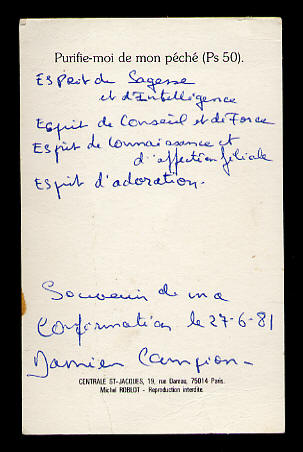 Purifie-moi de mon péché (Ps 50).
Esprit de Sagesse
et d'Intelligence
Esprit de Conseil et de Force
Esprit de Connaissance et
d'affection filiale
Esprit d'adoration.
Souvenir de ma
Confirmation le 27-6-81
Damien Campion
CENTRALE ST-JACQUES, 19, rue Dareau, 75014 Paris.
Michel ROBLOT - Reproduction interdite.